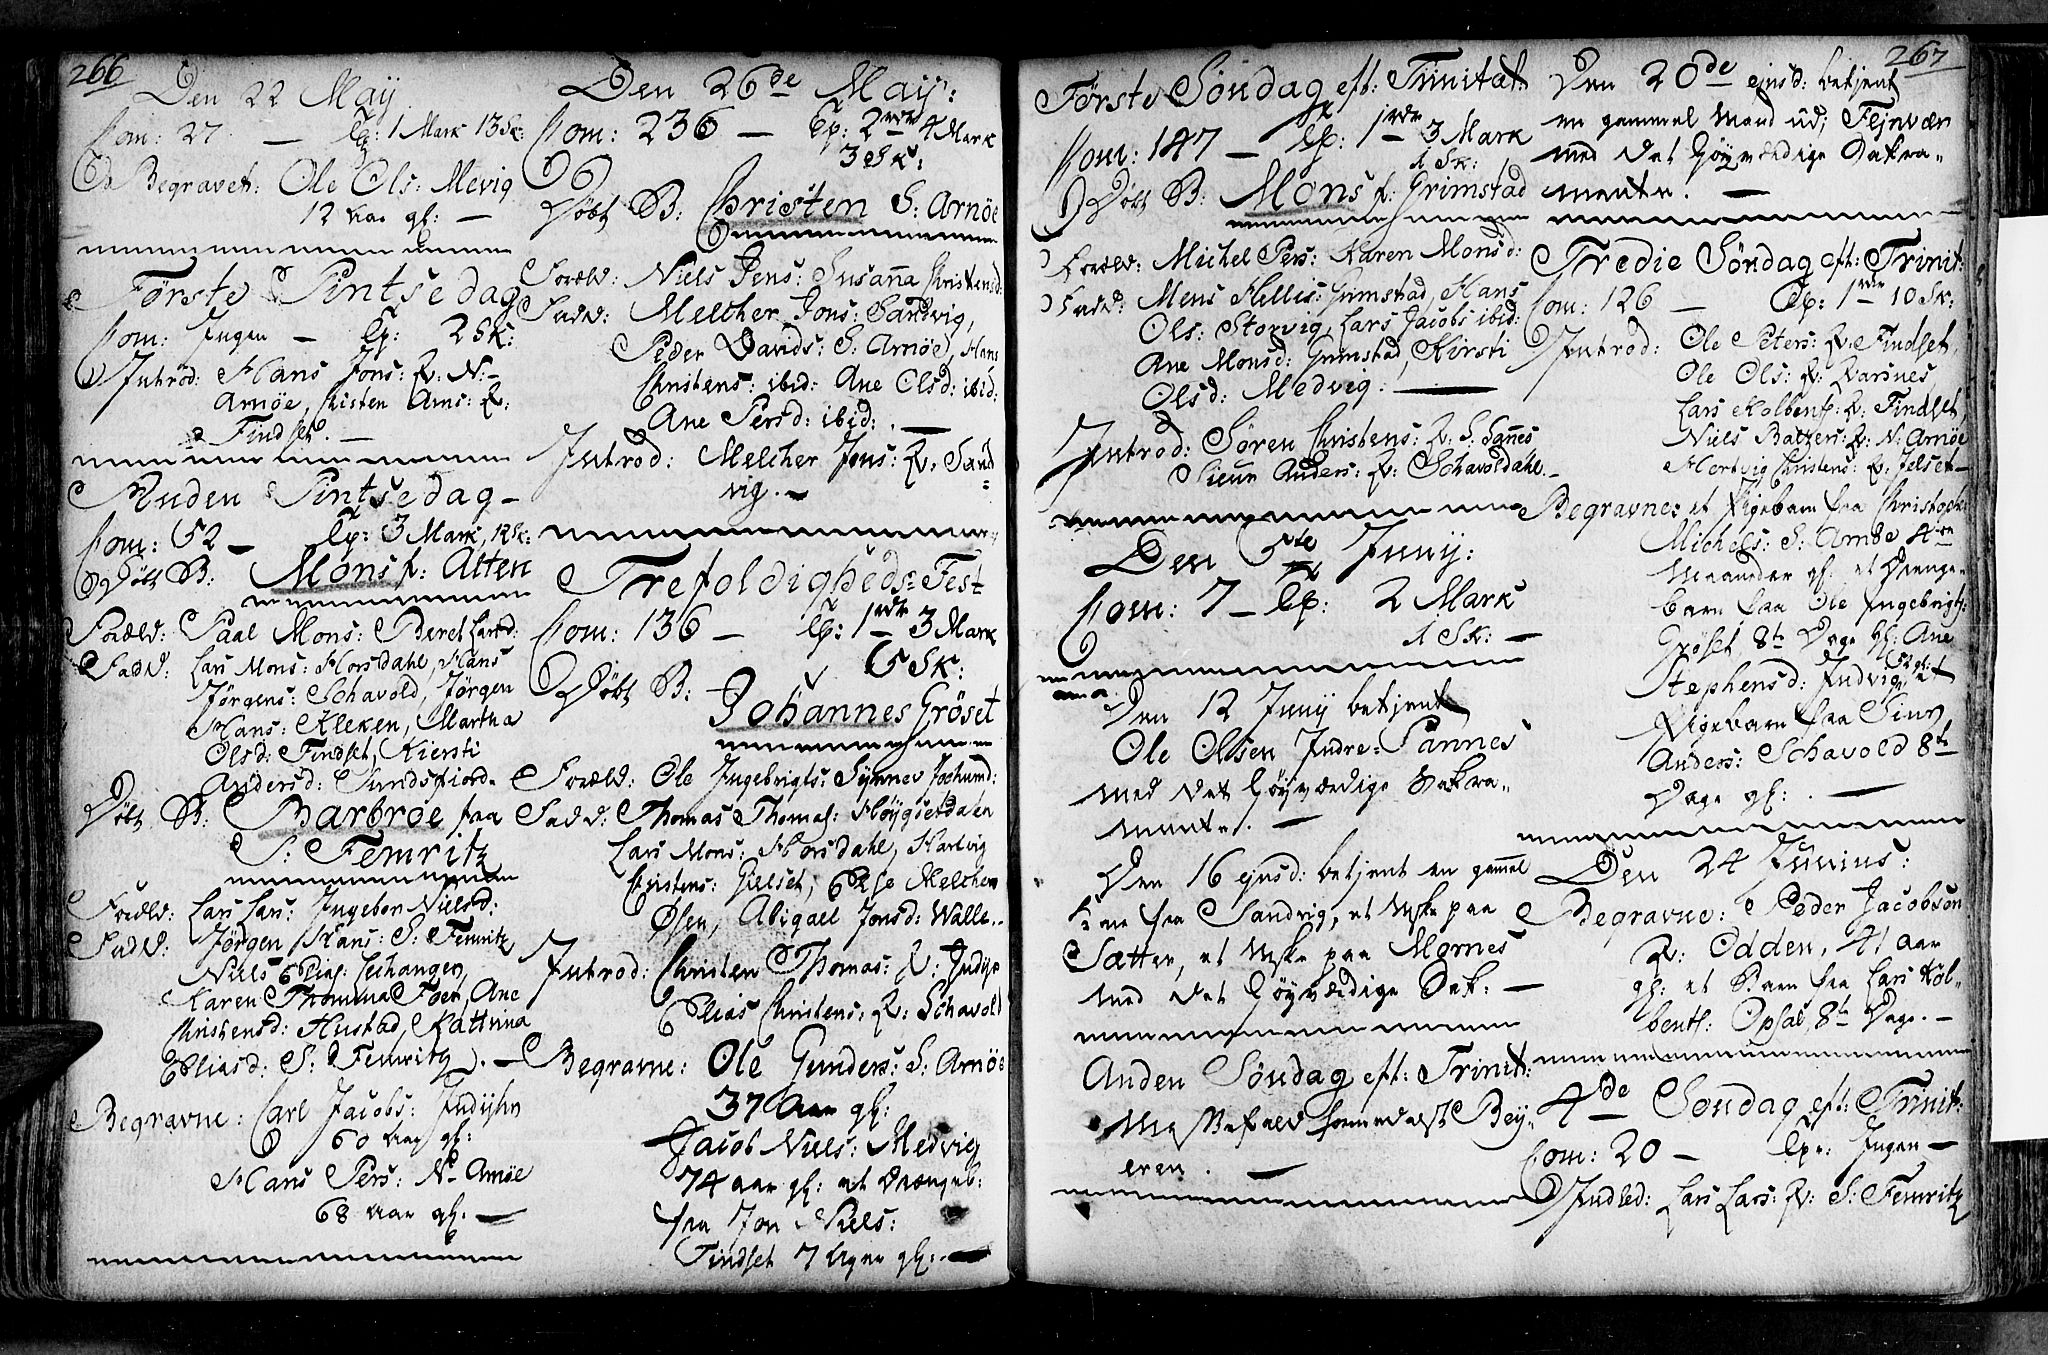 266
Den 22 May
Com: 27 — Cp: 1 Mark 13 Sk:
Begravet: Ole Ols: Mevig
12 Aar gl: —
Første Pintsedag
Com: Ingen — Cp: 2 Sk:
Introd: Hans Jons: Q: N:
Arnøe, Christen Arns: Q:
Findset. —
Anden Pintsedag —
Com: 52 — Cp: 3 Mark, 12 Sk:
Døbt B: Mons f: Atten
Foræld: Paal Mons: Beret Larsd:
Fadd: Lars Mons: Horsdahl, Hans
Jørgens: Schavold, Jørgen
Hans: Kleken, Martha
Olsd: Findset, Kiersti
Andersd: Sundsfiord
Døbt B: Barbroe fra
S: Femritz
Foræld: Lars Lars: Ingebor Nielsd:
Fadd: Jørgen Hans: S: Femritz
Niels Elias: Lechangen,
Karen Thomma Foer, Ane
Christensd: Hustad, Kattrina
Eliasd: S: Femritz. —
Begravne: Carl Jacobs: Indyhr
60 Aar gl:
Hans Pers: N. Arnøe
68 Aar gl: —
Den 26de May:
Com: 236 — Cp: 2 rdr 4 Mark
3 Sk:
Døbt B: Christen S: Arnøe
Foræld: Niels Jens: Susanna Christensd:
Fadd: Melcher Jons: Sandvig,
Peder Davids: S: Arnøe, Hans
Christens: ibid: Ane Olsd: ibid:
Ane Persd: ibid: . —
Introd: Melcher Jons: Q: Sand
vig. —
Trefoldigheds-Fest
Com: 136 — Cp: 1 rdr 3 Mark
5 Sk:
Døbt B: Johannes Grøset
Foræld: Ole Ingebrigts: Synnev Jochumd:
Fadd: Thomas Thomas: Høygsetdalen
Lars Mons: Horsdahl, Hartvig
Christens: Gielset, Else Melchers
Øsen, Abigael Jonsd: Walle.
Introd: Christen Thomas: Q: Indyr
Elias Christens: Q: Schavold
Begravne: Ole Gunders: S: Arnøe
37 Aar gl:
Jacob Niels: Medvig
74 Aar gl: et Drængeb:
fra Jon Niels:
Findset 7 Uger gl: —
267
Første Søndag eft: Trinitat:
Com: 147 — Cp: 1 rdr 3 Mark
1 Sk:
Døbt B: Mons f: Grimstad
Foræld: Michel Pers: Karen Monsd:
Fadd: Mens Hellis: Grimstad, Hans
Ols: Storvig, Lars Jacobs ibid:
Ane Monsd: Grimstad, Kirsti
Olsd: Medvig. —
Introd: Søren Christens: Q: S: Sannes
Sieur Anders: Q: Schavoldahl. —
Den 5te Juny:
Com: 7 — Cp: 2 Mark
1 Sk: —
Den 12 Juny betjent
Ole Olsen Indre-Sannes
med det høyværdige Sakra-
mente. —
Den 16 ejusd: betjent en gammel
fra Sandvig, et Mske paa
Sætter, et Mske paa Mornes
med det høyværdige Sak: —
Anden Søndag eft: Trinit:
Bey-
eren. —
Den 20de ejusd: betjent
en gammel Mand ud i Fejnvær
med det høyværdige Sakra-
mente. —
Tredie Søndag eft: Trinit:
Com: 126 — Cp: 1 rdr 10 Sk:
Introd: Ole Peters: Q: Findset,
Ole Ols: Q: Qvarsnes
Lars Kolbents: Q: Findset,
Niels Baltzers: Q: N: Arnøe
Hertvig Christens: Q: Jelset —
Begravnes et Pigebarn fra Christoph:
Michels: S: Arnøe 4re
Maaneder gl: et Drenge-
barn fra Ole Ingebrigts:
Grøset, 8te Dage gl: Ane
Stephensd: Indvig 52 gl: et
Pigebarn fra Siur
Anders: Schavold 8te
Dage gl: . —
Den 24 Junius:
Begravne: Peder Jacobson
Q: Odden, 41 Aar
gl: et Barn fra Lars Kol-
bents: Opsal, 8te Dage. —
4de Søndag eft: Trinit:
Com: 20 — Cp: Ingen —
Indled: Lars Lars: Q: S: Femritz